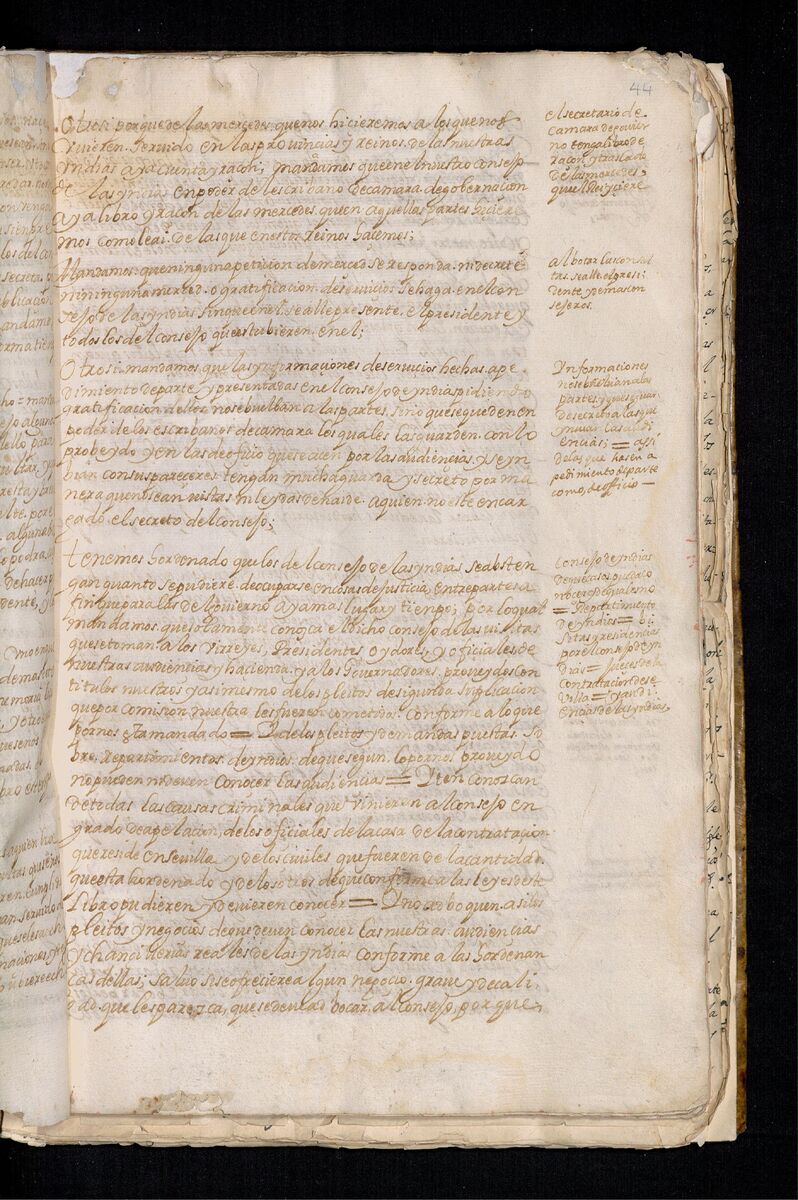 44
Otrosi porque de las mercedes que nos hicieremos a los que nos
uvieren servido en las provincias y reinos de las nuestras
yndias aya cuenta y racon; mandamos que en el nuestro consejo
de las yndias en poder del escribano de camara de gobernacion
aya libro y racon de las mercedes que en aquellas partes hicier
mos como le ai de las que en estos reinos hacemos;
el secretario de
camara de gouier
no tenga libro de
racon y traslado
de las mercedes
que el Rey yciere
Mandamos que ninguna peticion de merced se responda ni decrete
ni ninguna merced o gratificacion de servicios se haga en el con
sejo de las yndias sin que en el se alle presente el presidente y
todos los del consejo que estubieren en el;
al botar las consul
tas se alle el presi
dente y demas con
sejeros
Otrosi mandamos que las ynformaciones de servicios hechas a pe
dimiento de parte y presentadas en el consejo de yndias pidiendo
gratificacion dellos no se buelban a las partes, sino que se queden en
poder de los escribanos de camara los quales las guarden con lo
probeydo y en las de oficio que se acen por las audiencias y se yn
bian con sus pareceres tengan mucha guarda y secreto por ma
nera que no sean vistas ni leydas de nadie a quien no este encar
gado el secreto del consejo;
Informaciones
no se buelban a las
partes y que se guar
de secreto a las que
ynvian las audi
encias; = assi
de las que hasen a
pedimiento de parte
como de officio —
tenemos hordenado que los del consejo de las yndias se absten
gan quanto se pudiere de ocuparse en cosas de justicia entre partes a
fin que para las de govierno aya mas lugar y tienpo; por lo qual
mandamos que solamente conosca el dicho consejo de las visitas
que se toman a los virreyes, Presidentes oydores, y oficiales de
nuestras audiencias y hacienda y a los Governadores proveydos con
titulos nuestros y asimesmo de los pleitos de segunda suplicacion
que por comision nuestra les fueren cometidos conforme a lo que
por nos esta mandado = I de los pleitos y demandas puestas so
bre repartimientos de yndios de que segun lo por nos proveydo
no pueden ni deven conocer las audiencias = Iten conoscan
de todas las causas criminales que vinieren al consejo en
grado de apelacion de los oficiales de la casa de la contratacion
que reside en sevilla y de los civiles que fueren de la cantidad
que esta hordenado y de los otros de que conforme a las leyes deste
Libro pudieren y devieren conocer = I no adboquen a si los
pleitos y negocios de que deven conocer las nuestras audiencias
y chancillerias reales de las yndias conforme a las hordenan
cas dellas; salvo si se ofreciere algun negocio grave y de cali
dad que les paresca, que se deve adbocar, al consejo, porque
Consejo de yndias
de que casos puede co
nocer y de quales no
= Repartimiento
de yndios = vi
sitas y residencias
por el consejo de yn
dias = jueces de la
contratacion de se
villa = y audi
encias de las yndias